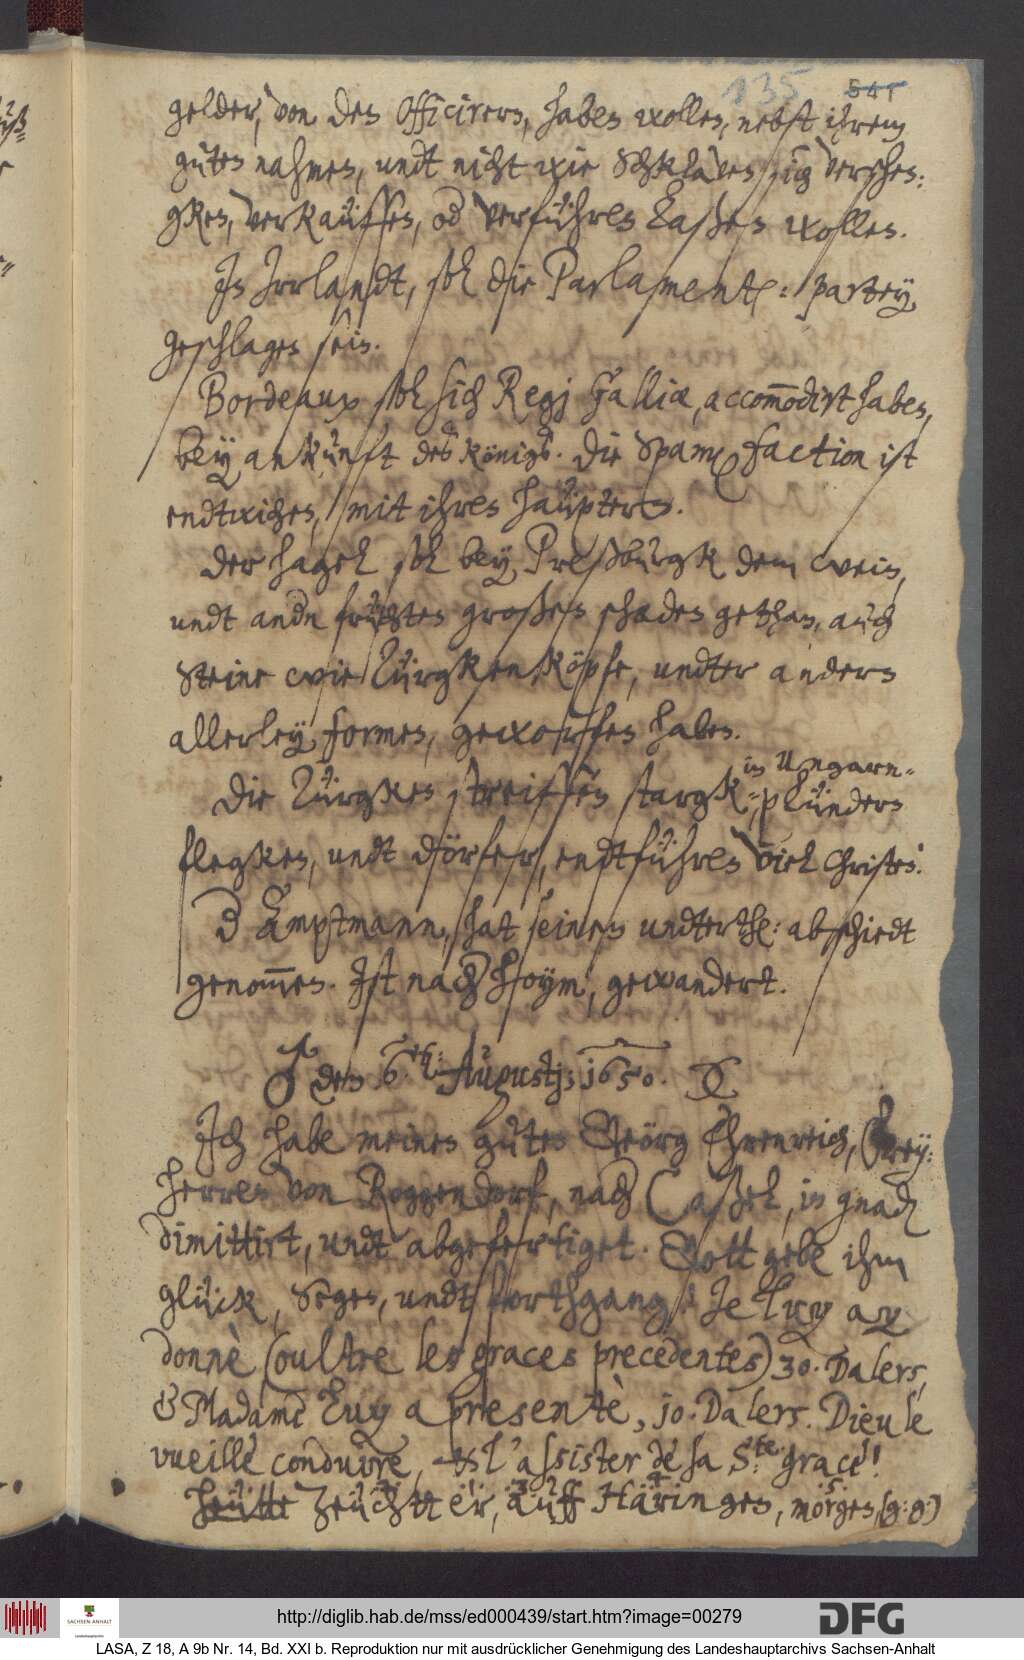 135 541
gelder, von den Officirern, haben wollen, nebst ihrem
guten nahmen, undt nicht wie Schklaven sich verschen:
gken, verkauffen, od verführen laßen wollen.
In Irrlandt, soll die Parlaments: partey,
geschlagen sein.
Bordeaux soll sich Regj Galliæ, accom̅odirt haben,
bey ankunft des Königs. Die Span: faction ist
endtwichen, mit ihren häuptern.
Der hagel soll bey Preßburgk dem wein,
undt andn früchten großen schaden gethan, auch
Steine wie Türgkenköpfe, undter andern
allerley formen, geworffen haben.
in Ungarn-
Die Türgken streiffen stargk, plündern
flegken, undt dörfer, endtführen viel Christen.
D Amptmann, hat seinen undterth: abschiedt
genom̅en. Ist nach Hoym, gewandert.
♂ den 6.ten: Augustj; 1650.
Ich habe meinen guten Georg Ehrenreich, Frey:
herren von Roggendorf, nach Caßel, in gnad
dimittirt, undt abgefertiget. Gott gebe ihm
glück, Segen, undt forthgang! Je luy ay
donnè (oultre les graces precedentes) 30. Dalers,
& Madame luy a presentè, 10. Dalers. Dieu le
vueille conduire, & l'assister de sa S.te grace!
heütte zeücht er, auff Häringen, morgen, (g: g:)
http://diglib.hab.de/mss/ed000439/start.htm?image=00279
SACHSEN-ANHALT
DFG
LASA, Z 18, A 9b Nr. 14, Bd. XXI b. Reproduktion nur mit ausdrücklicher Genehmigung des Landeshauptarchivs Sachsen-Anhalt